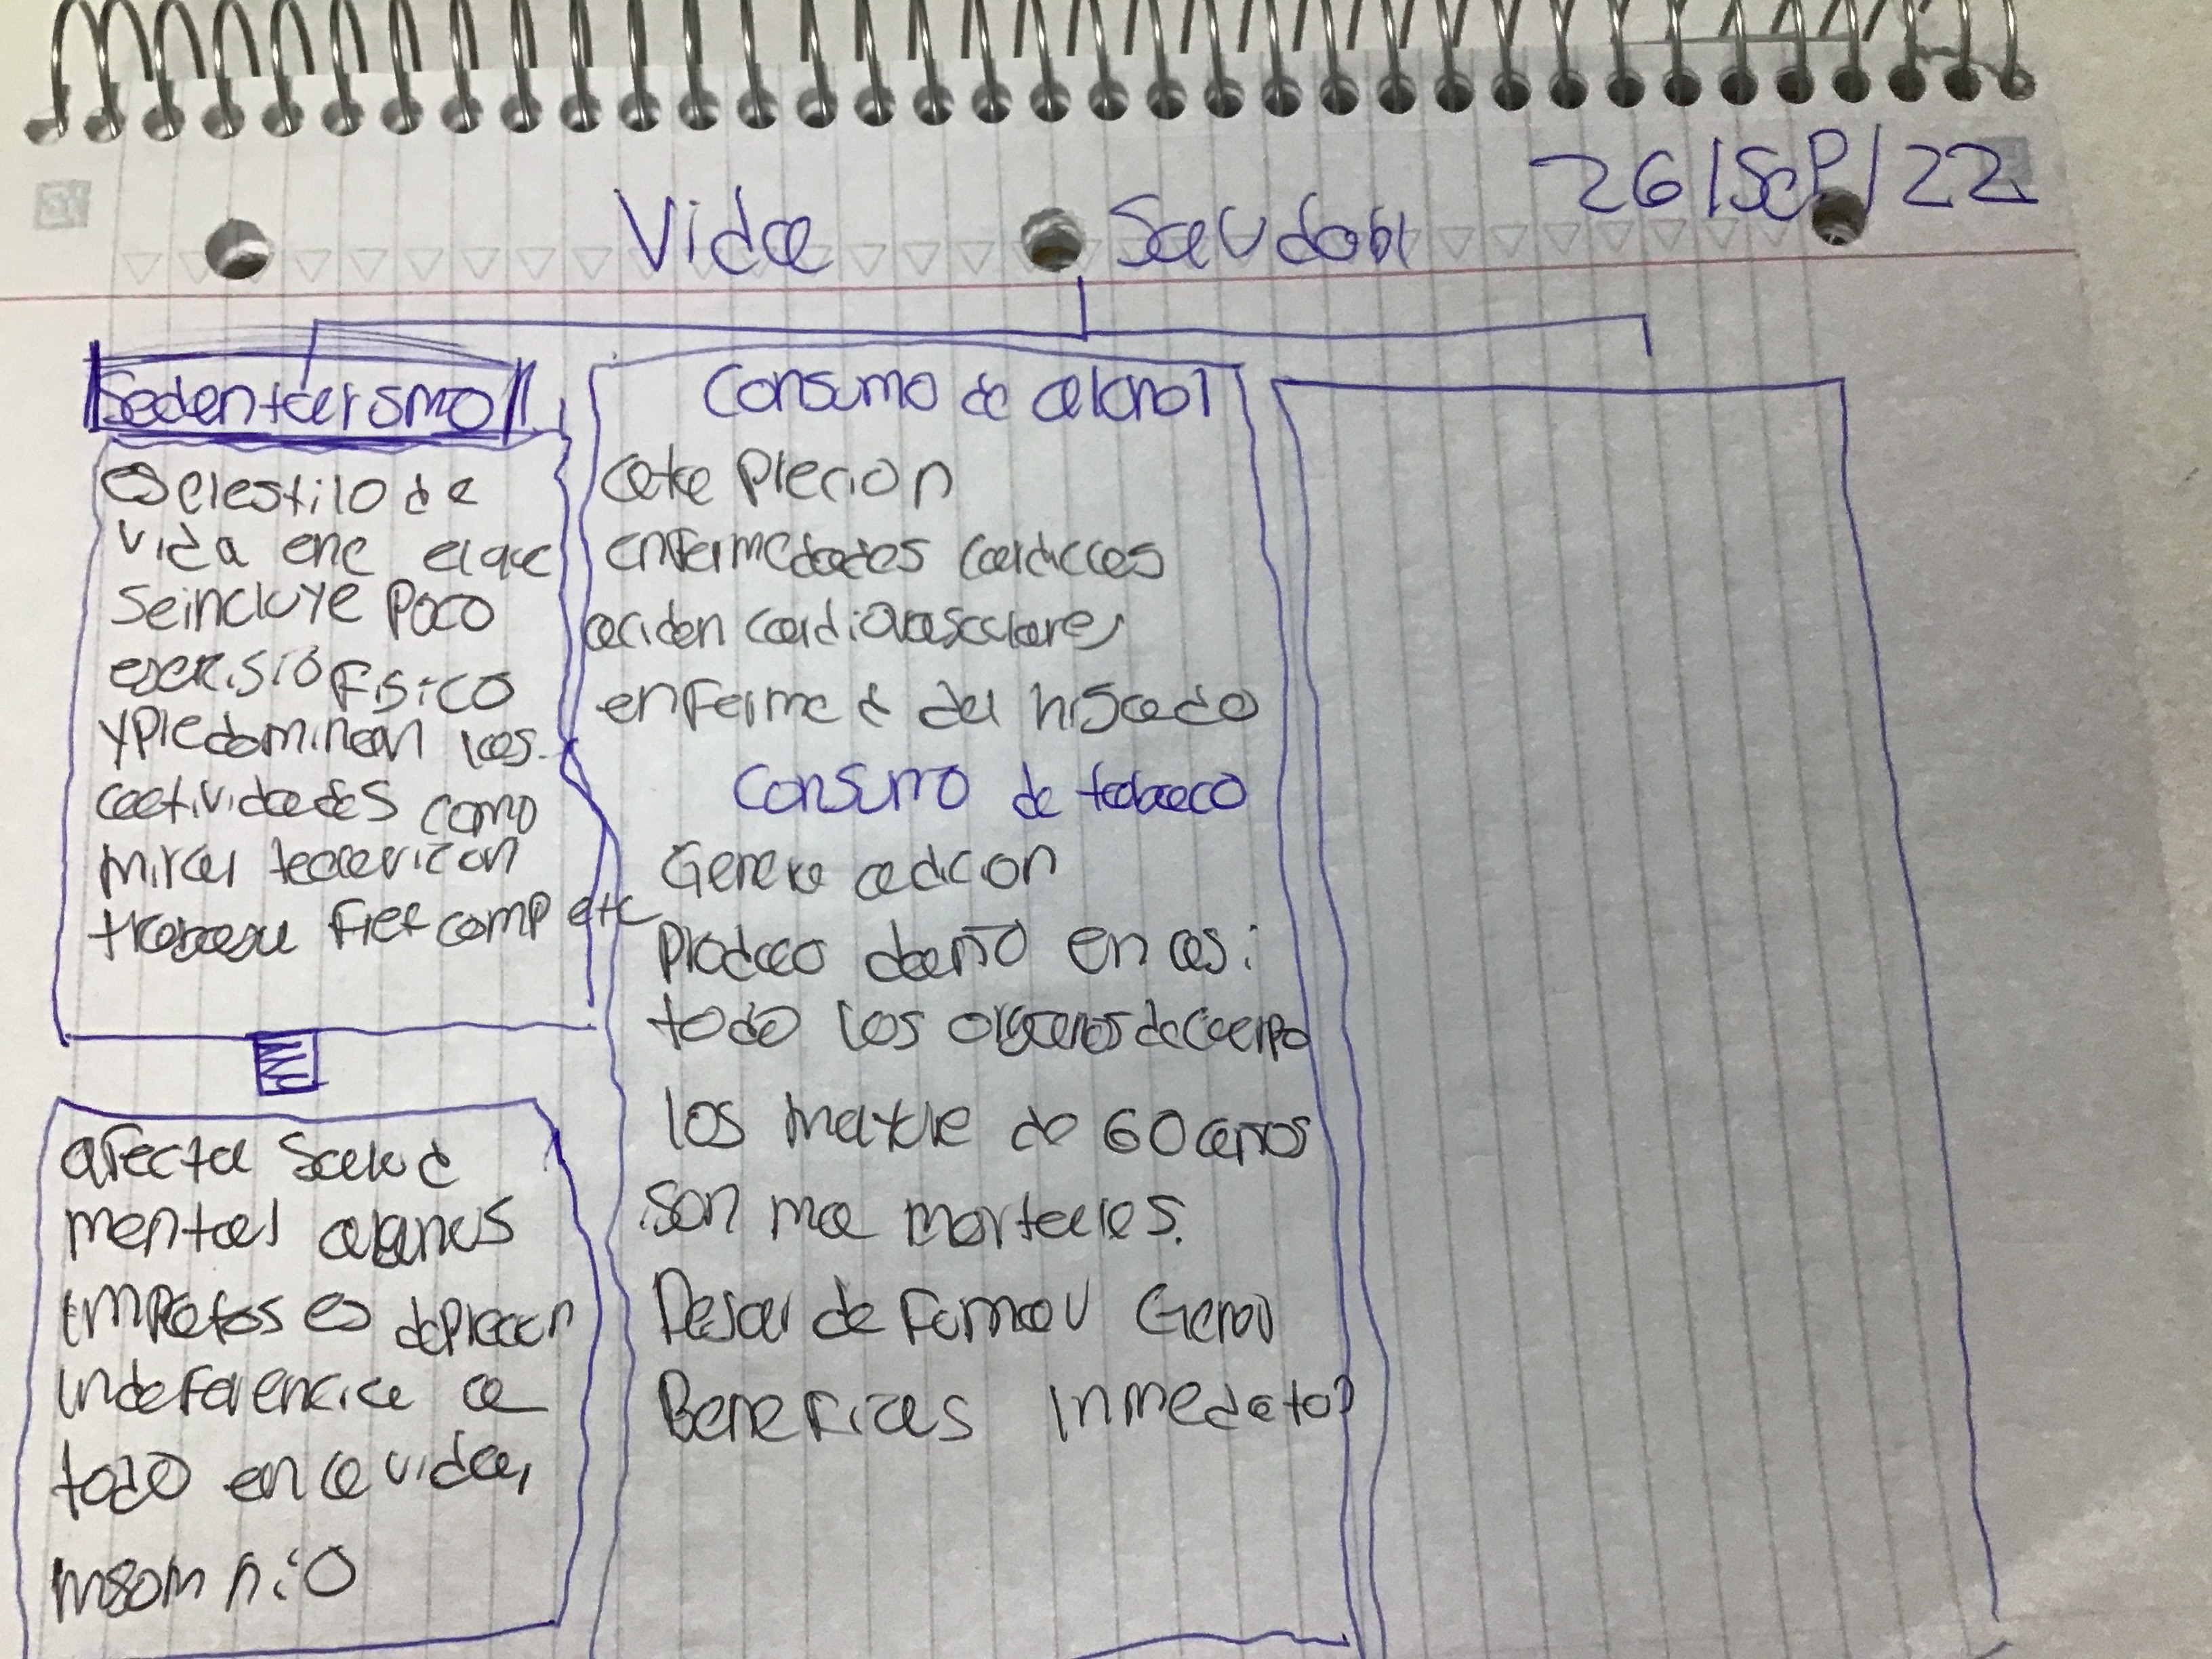 26/Sep/22
Vida Saudabl
Sedentarismo
es el estilo de
vida ene el que
se incluye Poco
Fisico
y Predominan las
actividades como
mirar
Fret comp etc
afecta Salud
mental algunos
es
indeferencia a
todo en a vida,
insomnio
Consumo de alcohol
enfermedades cardiacas
acciden cardiovasculares
enfermed del higado
Consumo de tabaco
Genera adicion
Produco daño en casi
todo los organos de cuerpo
los de 60 años
son ma mortales.
Dejar de Fumar Genera
Beneficios inmedato